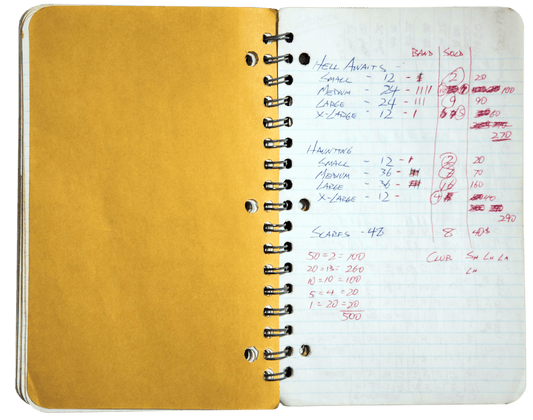 BAND SOLD
HELL AWAITS -
SMALL - 12 - 2 20
MEDIUM - 24 - IIII 100
LARGE - 24 - III 9 90
X-LARGE - 12 - I 60
270
HAUNTING
SMALL - 12 - 2 20
MEDIUM - 36 - 70
LARGE - 36 - 16 160
X-LARGE - 12 - 4 40
290
SCARFS - 48 8 40
50=2=100 CLUB
20=13=260
10=10=100
5=4=20
1=20=20
500